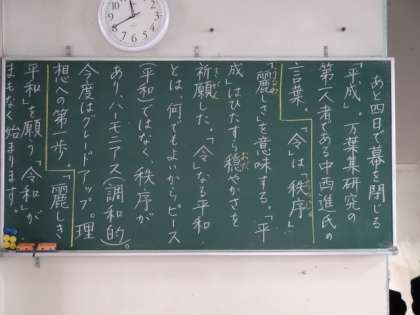 あと四日で幕を閉じる
「平成」。万葉集研究の
第一人者である中西進氏の
言葉 「令」は「秩序」
「麗しさ」を意味する。「平
成」はひたすら穏やかさを
祈願した。「令」なる平和
とは、何でもよいからピース
(平和)ではなく、秩序が
あり、ハーモニアス(調和的)。
今度はグレードアップ。理
想への第一歩。「麗しき
平和」を願う「令和」が
まもなく始まります。